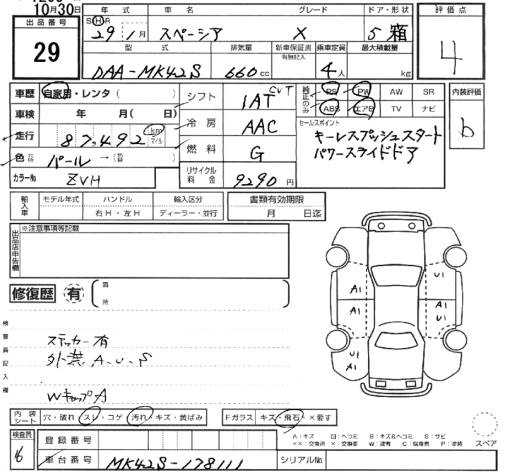 10月30日
出品番号
29
年式 車名 グレード ドア・形状
S H R 29年1月 スペーシア X 5 箱
型式 排気量 新車保証書 乗車定員 最大積載量
有無記入
DAA-MK42S 660cc 4人 kg
評価点
4
車歴 自家用・レンタ( )
車検 年 月( 日)
走行 87,492 km マイル
色 パール→(色替)
カラーNo ZVH
シフト IAT CVT
冷房 AAC
燃料 G
リサイクル料金 9290円
純正のみ PS PW AW SR
ABS エアB TV ナビ
セールスポイント
キーレスプッシュスタート
パワースライドドア
内装評価
b
輸入車 モデル年式 ハンドル 輸入区分
右H・左H ディーラー・並行
書類有効期限
月 日迄
出品店申告欄
※注意事項等記載
修復歴 有 箇所
検査員記入欄
ステッカー有
外装A.U.S
WキャップA
A1 U1
A1 A1
U1 A1
U1
内装シート 穴・破れ スレ・コゲ 汚れ・キズ・黄ばみ
Fガラス キズ・飛石・×要す
検査員
16
登録番号
車台番号 MK42S-178111
シリアルNo
A:キズ U:ヘコミ B:キズ&ヘコミ S:サビ
××:交換済 ×:交換 W:波有 C:腐食有 P:塗装
スペア